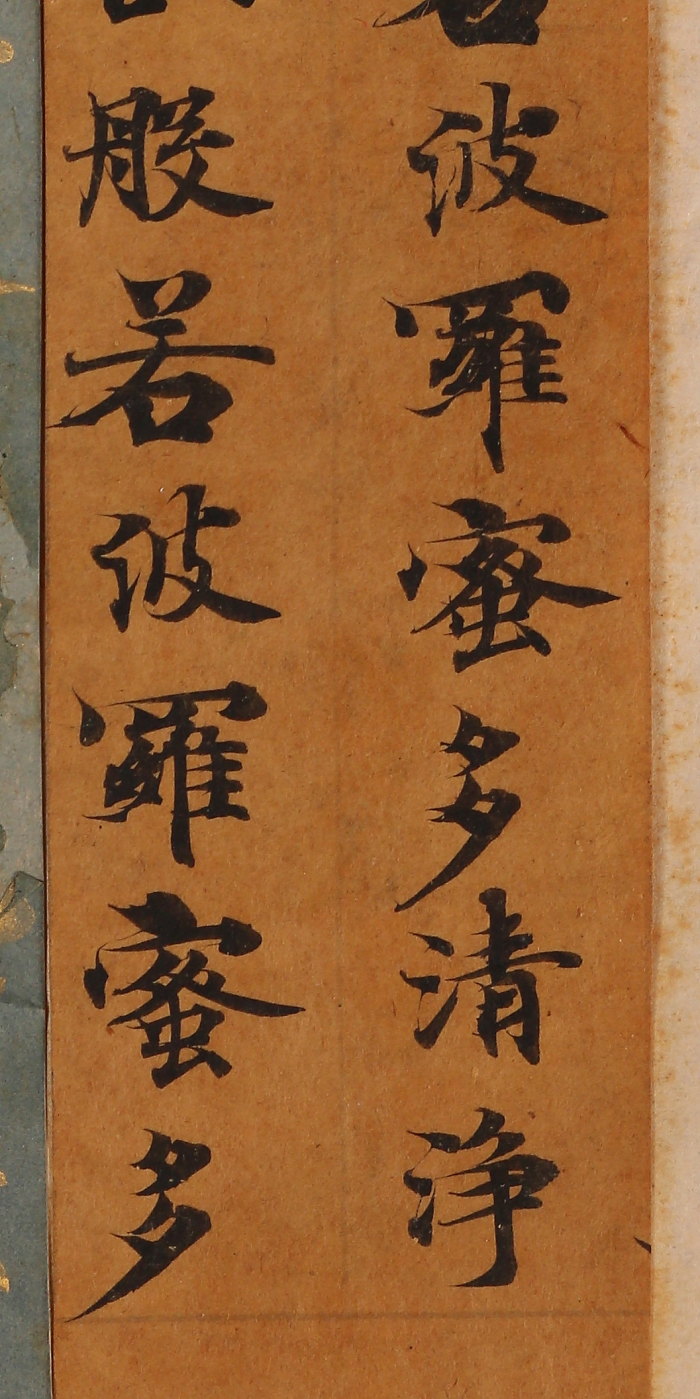 若波羅蜜多清浄
般若波羅蜜多